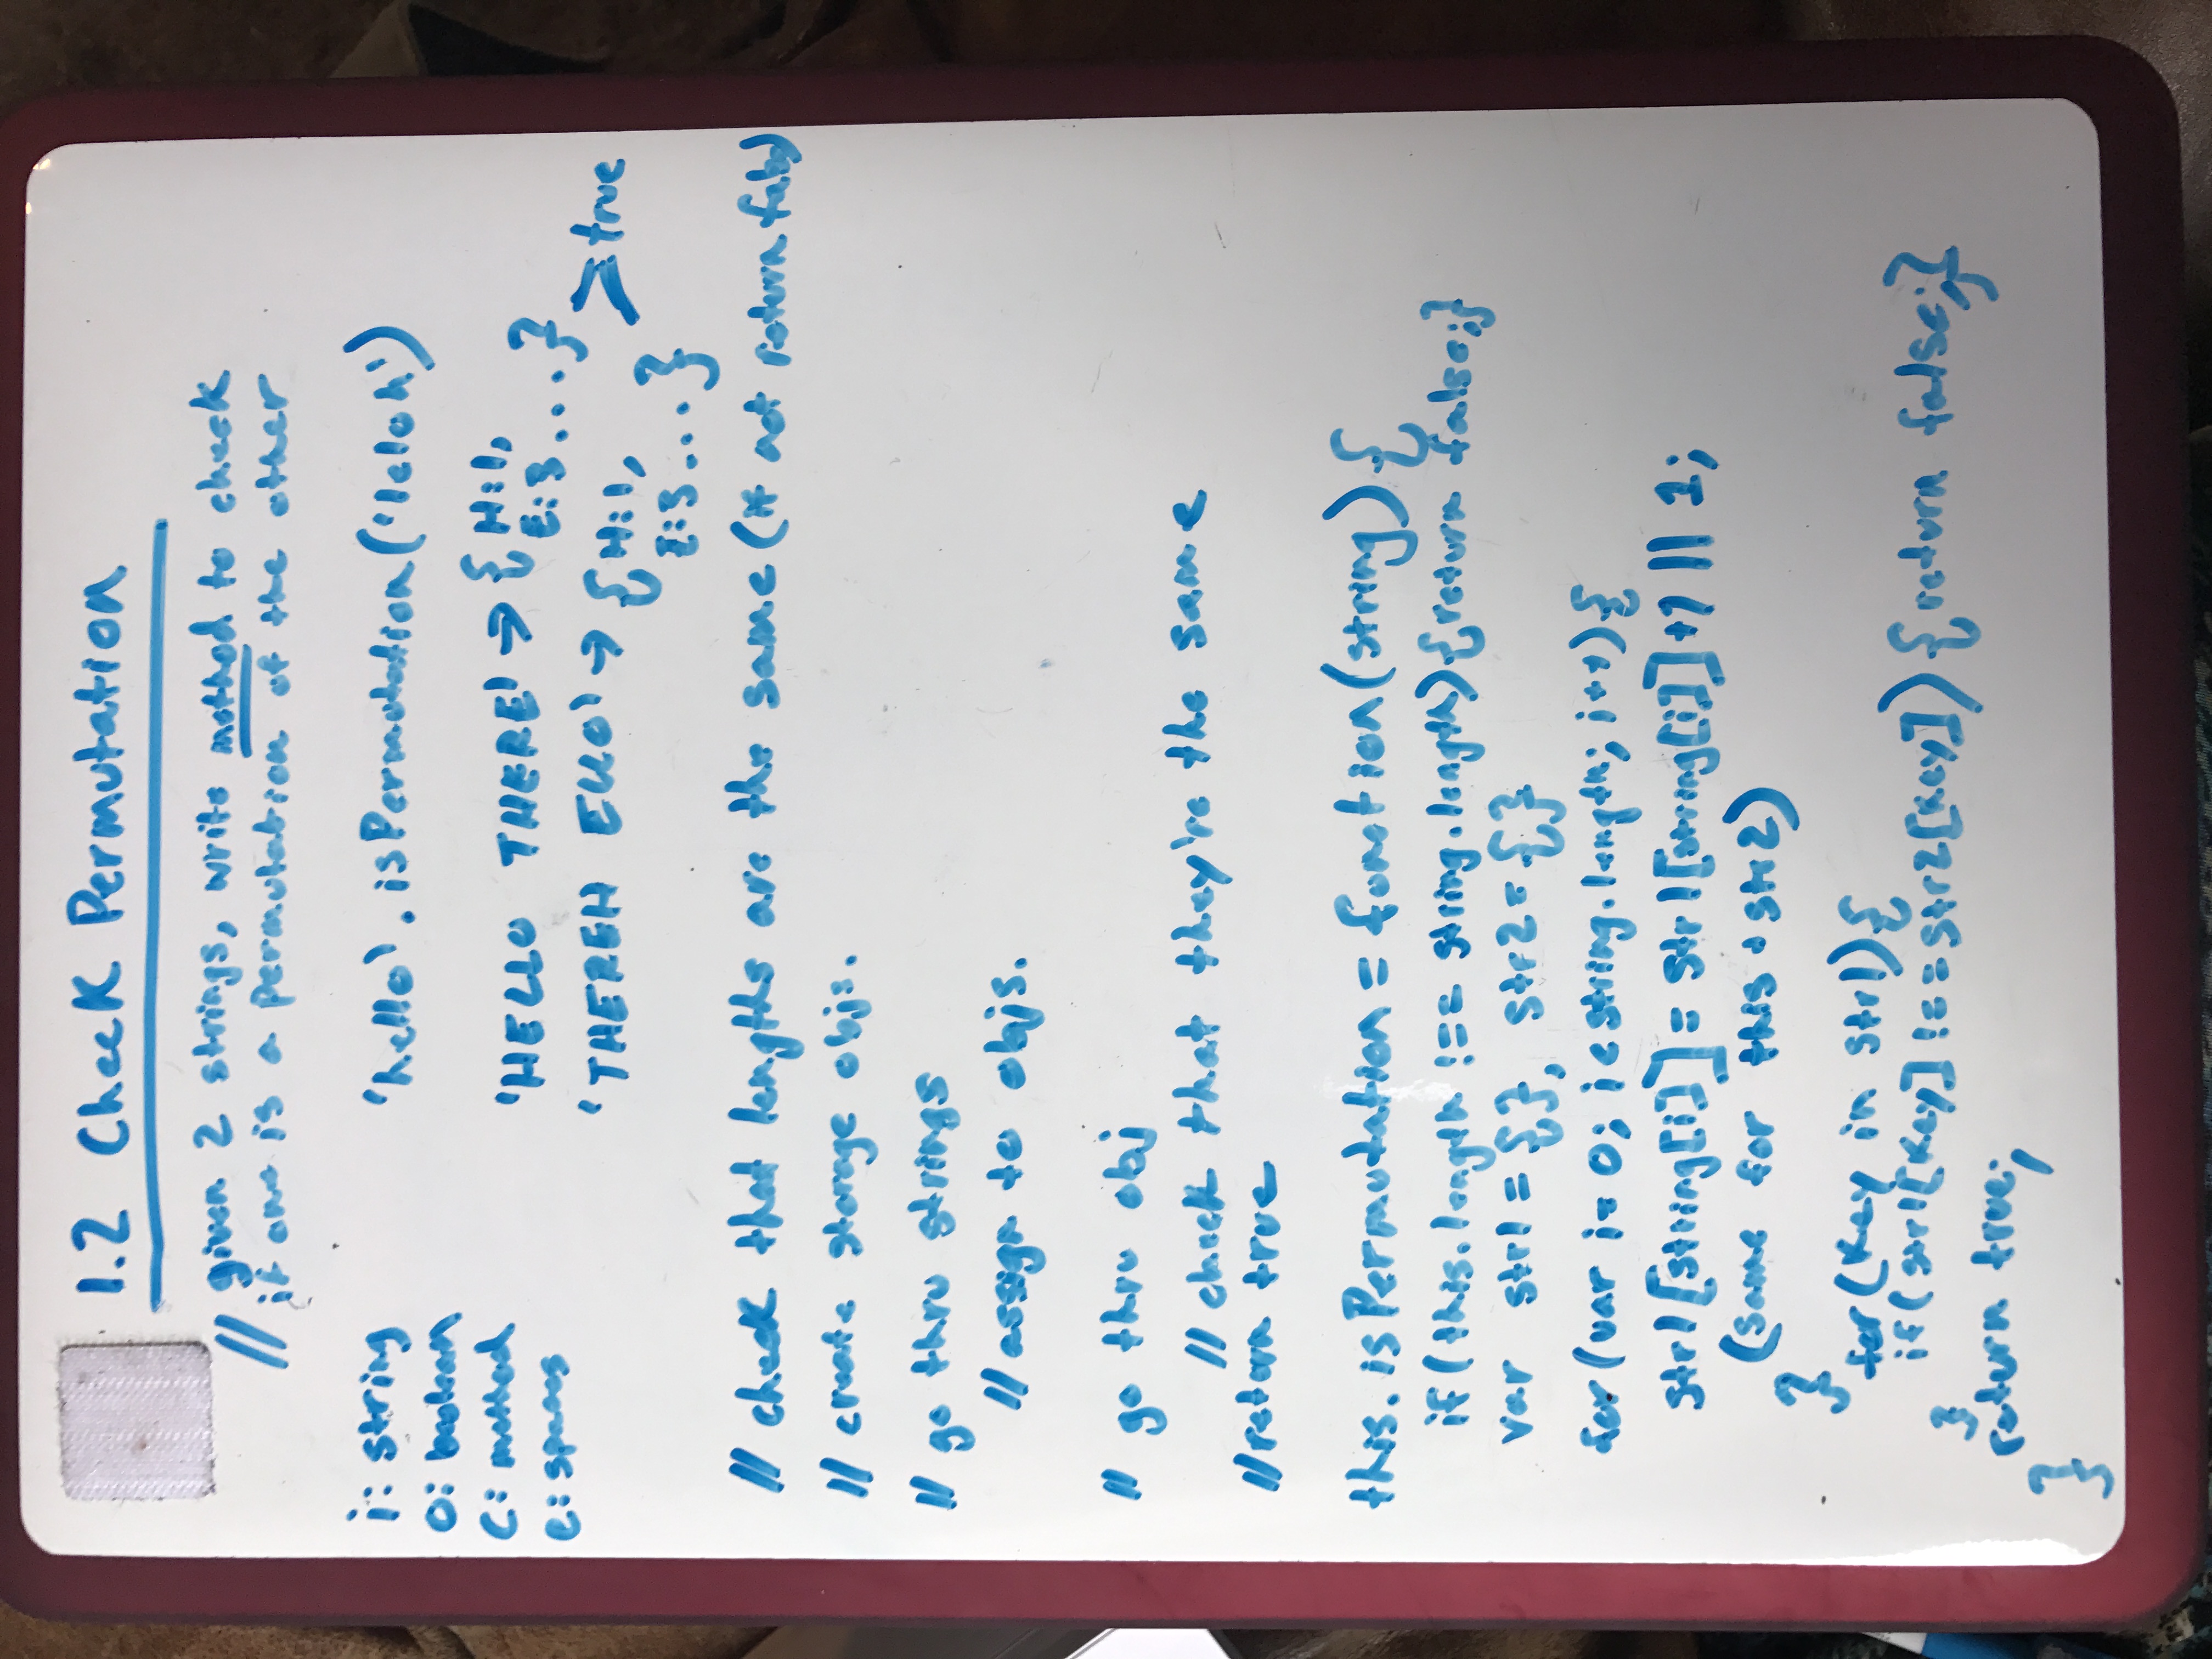 1.2 Check Permutation
// given 2 strings, write method to check
if one is a permutation of the other
i: string
o: boolean
c: method
e: spaces
'hello'.isPermutation('leloh')
'HELLO THERE' → { H:1,
E:3 ... }
'THEREH ELLO' → { H:1,
E:3 ... }
> true
// check that lengths are the same (if not return false)
// create storage objs.
// go thru strings
// assign to objs.
// go thru obj
// check that they're the same
// return true
this.isPermutation = function(string){
if(this.length !== string.length){return false;}
var str1 = {}, str2 = {}
for(var i = 0; i < string.length; i++){
str1[string[i]] = str1[string[i]]+1 || 1;
(same for this + str2)
}
for(key in str1){
if(str1[key] !== str2[key]){return false;}
}
return true;
}